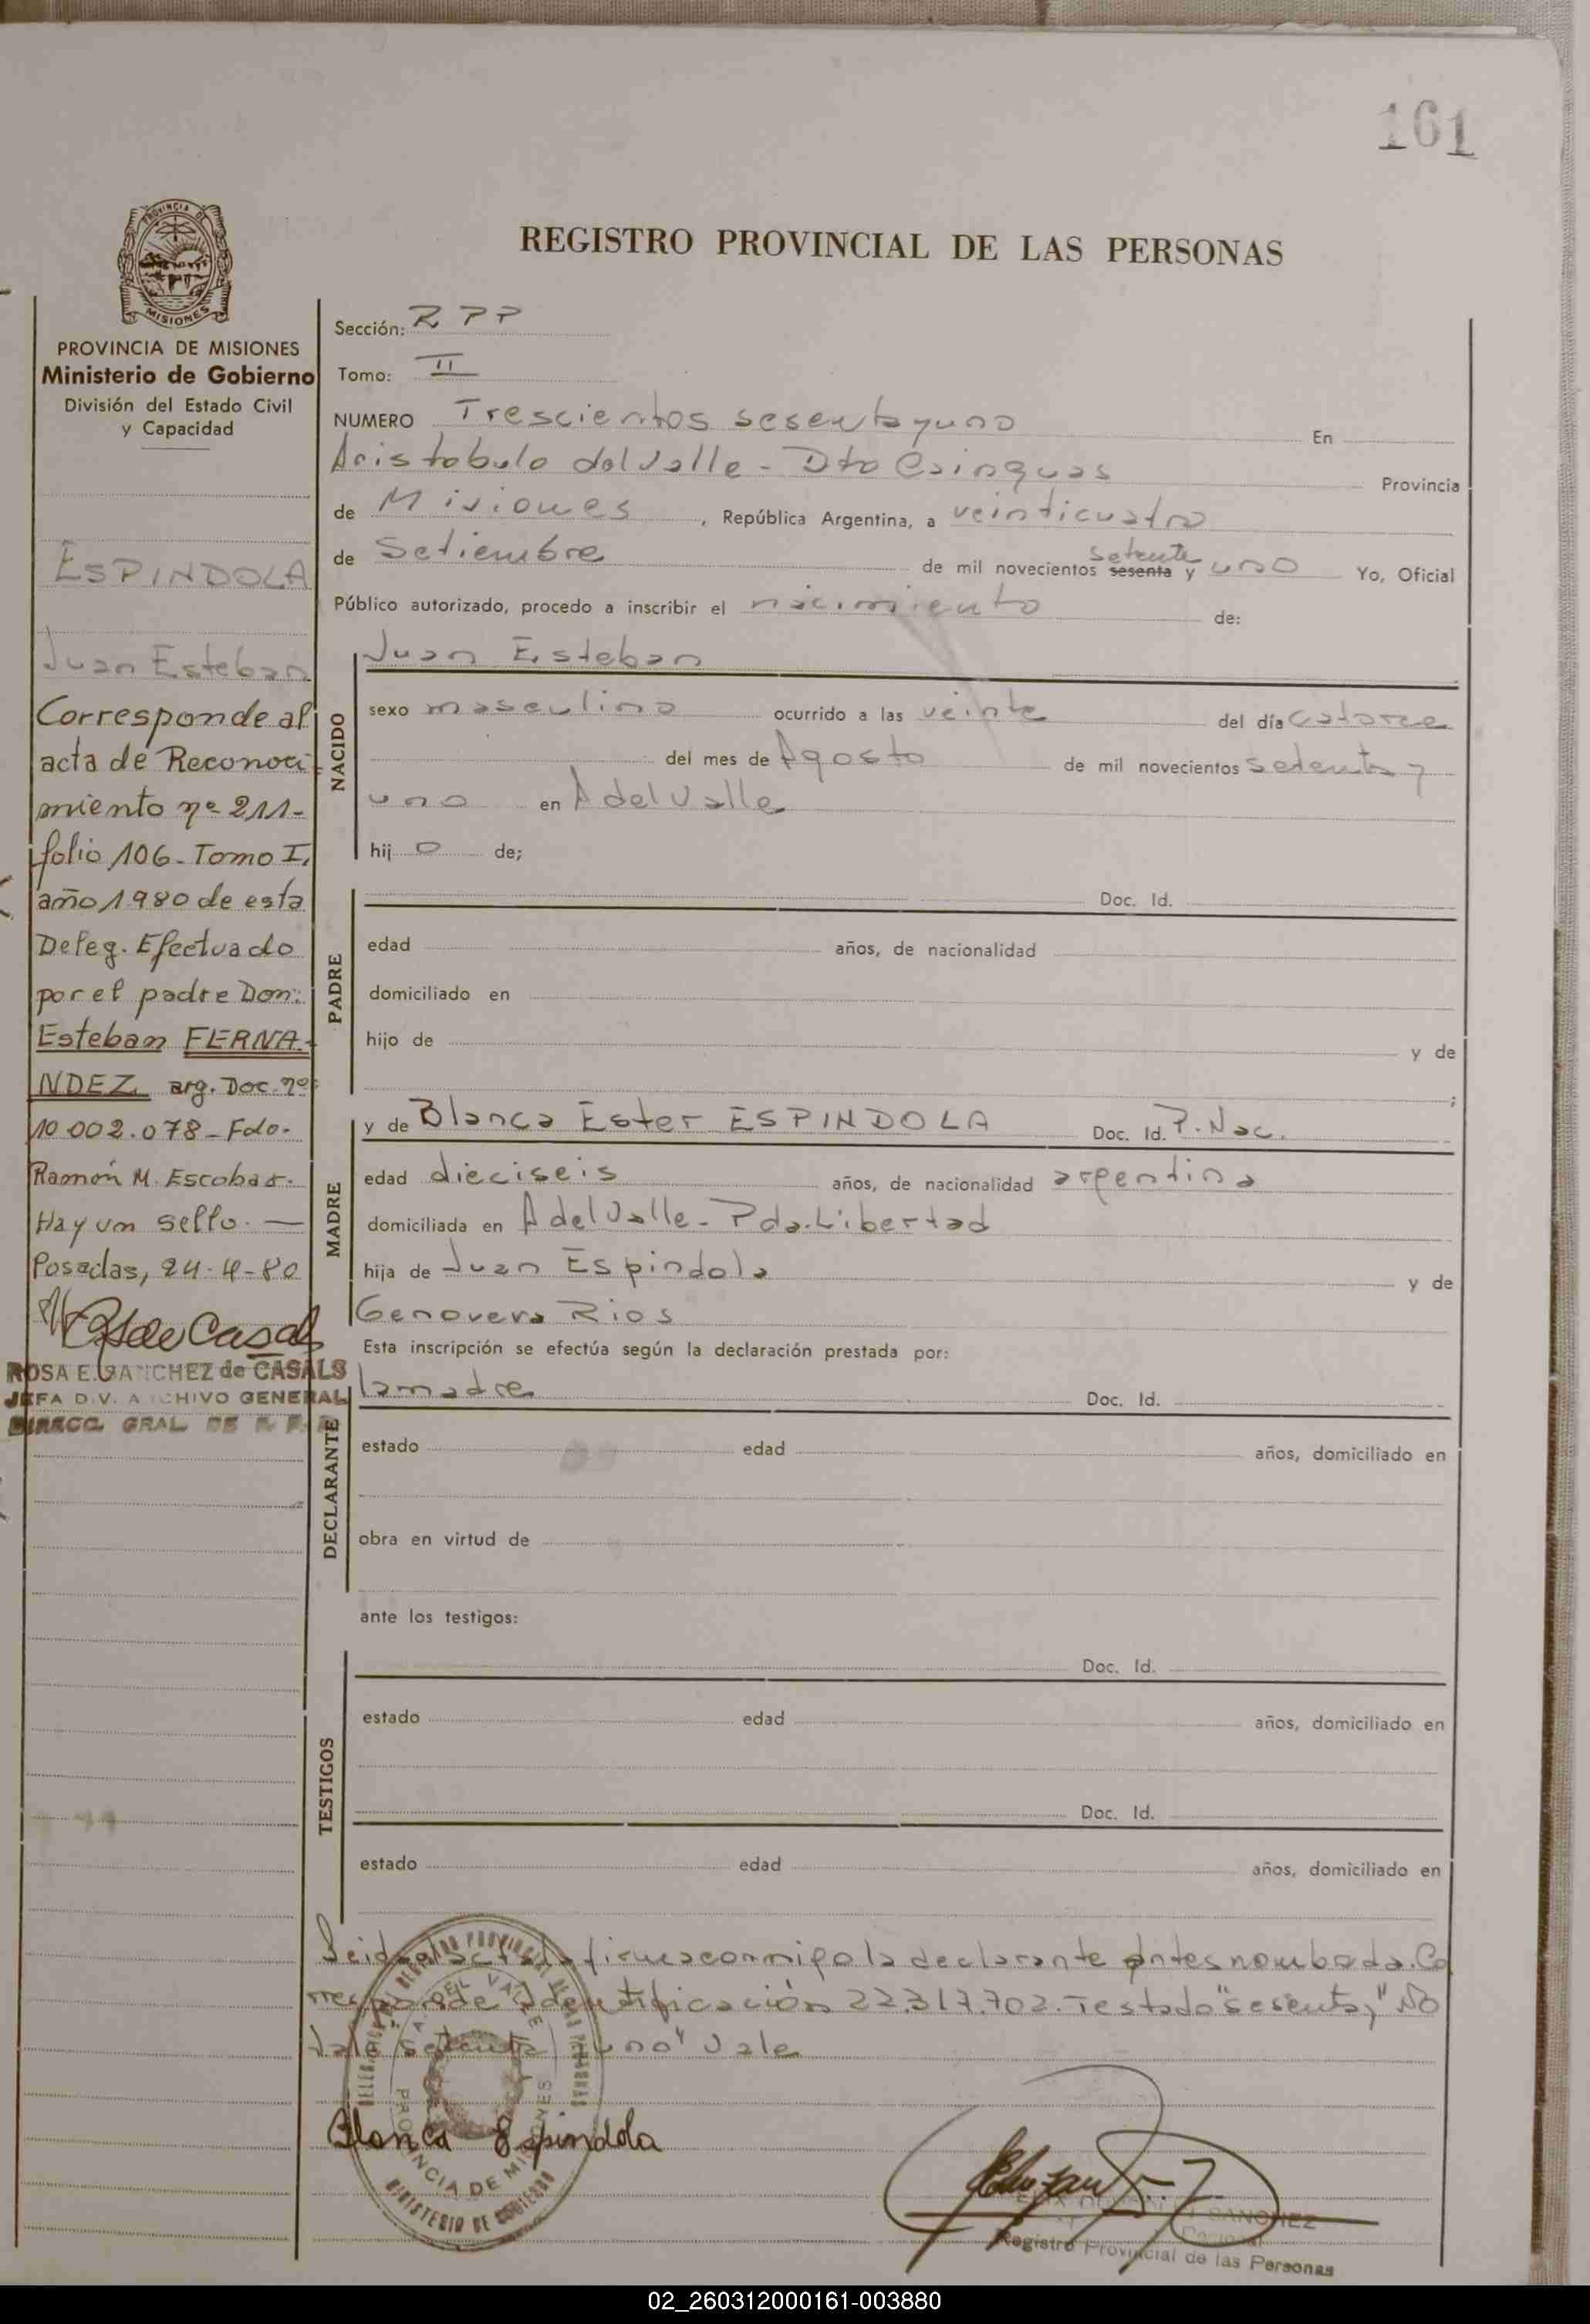 161
PROVINCIA DE
MISIONES
REGISTRO PROVINCIAL DE LAS PERSONAS
PROVINCIA DE MISIONES
Ministerio de Gobierno
División del Estado Civil
y Capacidad
ESPINDOLA
Juan Esteban
Corresponde al
acta de Reconoci
miento nº 211-
folio 106-Tomo I,
año 1980 de esta
Deleg. Efectuado
por el padre Don:
Esteban FERNA-
NDEZ arg. Doc. nº
10.002.078-Fdo.
Ramón M. Escobar.
Hay un sello. —
Posadas, 24-4-80
ROSA E. SANCHEZ de CASALS
JEFA DIV. ARCHIVO GENERAL
DIRECC. GRAL DE R. P. P.
Sección: R P P
Tomo: II
NUMERO Trescientos sesenta y uno En
Aristobulo del Valle - Dto Cainguas Provincia
de Misiones, República Argentina, a veinticuatro
de Setiembre de mil novecientos sesenta y setenta uno Yo, Oficial
Público autorizado, procedo a inscribir el nacimiento de:
NACIDO
Juan Esteban
sexo masculino ocurrido a las veinte del día catorce
del mes de Agosto de mil novecientos setenta y
uno en A del Valle
hij o de;
PADRE
Doc. Id.
edad años, de nacionalidad
domiciliado en
hijo de y de
;
MADRE
y de Blanca Ester ESPINDOLA Doc. Id. P. Nac.
edad dieciseis años, de nacionalidad argentina
domiciliada en A del Valle - Pda. Libertad
hija de Juan Espindola y de
Genovera Rios
Esta inscripción se efectúa según la declaración prestada por:
DECLARANTE
la madre Doc. Id.
estado edad años, domiciliado en
obra en virtud de
ante los testigos:
TESTIGOS
Doc. Id.
estado edad años, domiciliado en
Doc. Id.
estado edad años, domiciliado en
Leida el acta la firma conmigo la declarante antes nombada. Co
rresponde identificación 22.317.702. Testado "sesenta," No
vale "setenta y uno" Vale
Blanca Espindola
A. DEL VALLE
PROVINCIA DE MISIONES
MINISTERIO DE GOBIERNO
SANCHEZ
Registro Provincial de las Personas
02_260312000161-003880